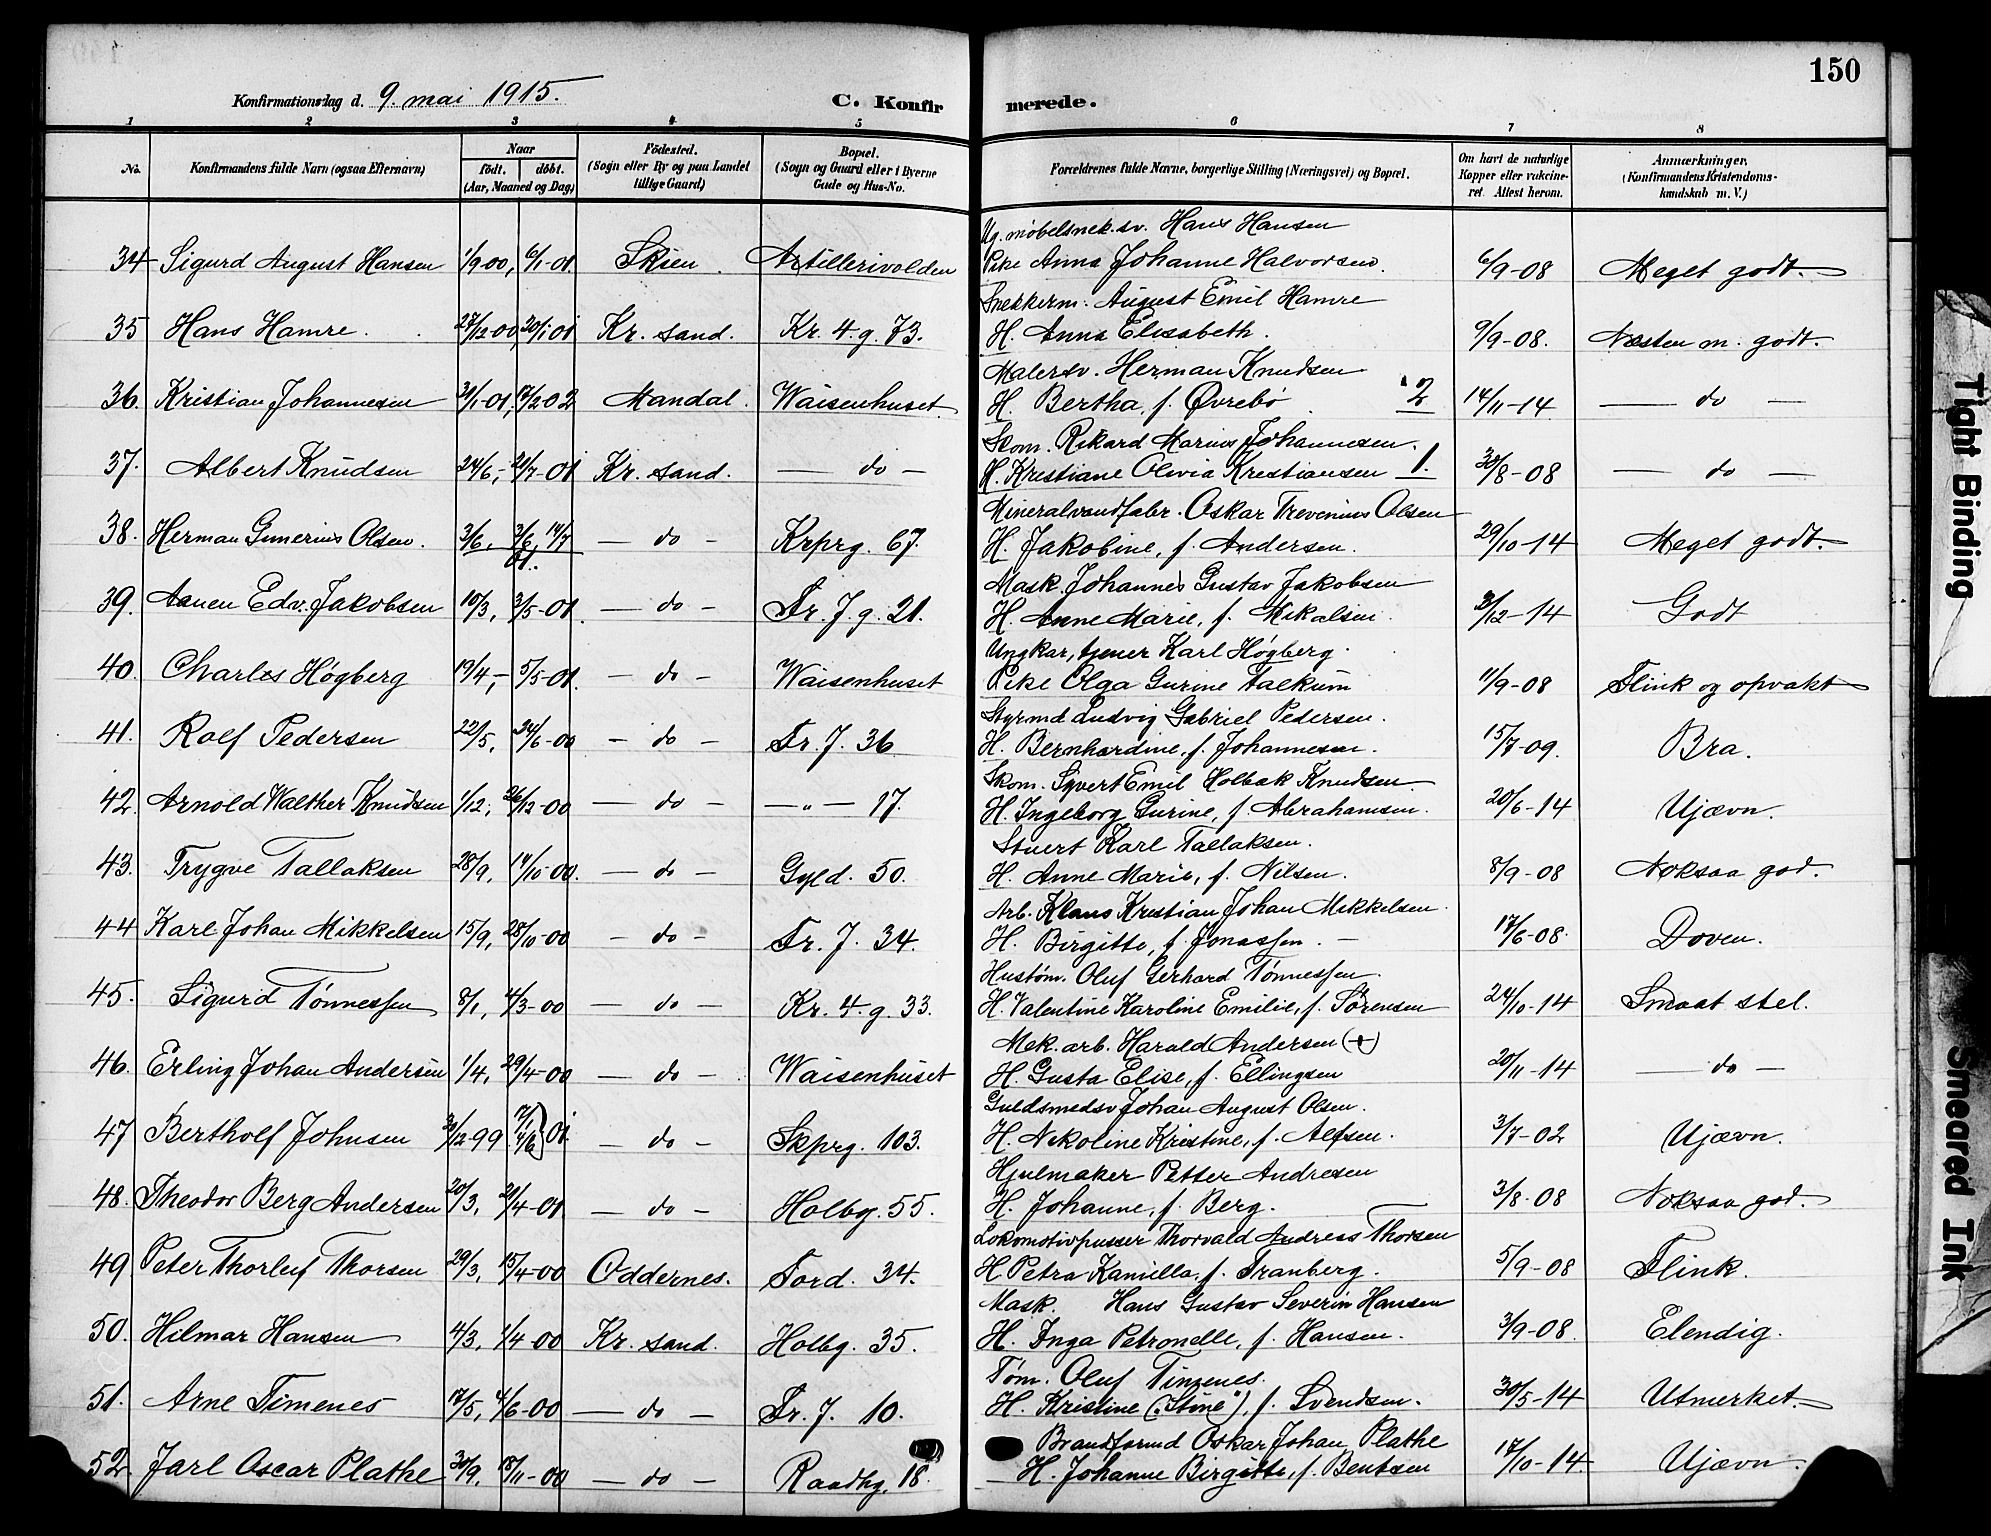 150
Konfirmationsdag d. 9. mai 1915.
C. Konfirmerede.
1 2 3 4 5 6 7 8
No. Konfirmandens fulde Navn (ogsaa Efternavn) Naar födt. döbt. (Aar, Maaned og Dag) Födested. (Sogn eller By og paa Landet tillige Gaard) Bopæl. (Sogn og Gaard eller i Byerne Gade og Hus-No. Forældrenes fulde Navne, borgerlige Stilling (Næringsvei) og Bopæl. Om havt de naturlige Kopper eller vakcineret. Attest herom. Anmærkninger. (Konfirmandens Kristendomskundskab m. V.)
Ug. møbelsnek.sv. Hans Hansen
34 Sigurd August Hansen 1/9 00, 6/1-01 Skien. Artillerivolden Pike Anna Johanne Halvorsen. 6/9-08 Meget godt.
Snekkerm. August Emil Hamre
35 Hans Hamre. 27/12 00, 20/1 01 Kr. sand. Kr. 4. g. 73. H. Anna Elisabeth. 9/9-08. Næsten m. godt.
Malersv. Herman Knudsen
36. Kristian Johannesen 31/1-01, 17/2-02 Mandal. Waisenhuset. H. Bertha, f. Øvrebø 2 14/11-14 — do —
Skom. Rikard Marius Johannesen.
37. Albert Knudsen 24/6,- 21/7-01 Kr. sand. — do — H. Kristiane Olivia Kristiansen 1. 30/8-08 — do —
Mineralvandfabr. Oskar Trevenius Olsen
38. Herman Gunerius Olsen. 3/6, 3/6, 14/7 01. — do — Krprg. 67. H. Jakobine, f. Andersen. 29/10-14 Meget godt.
Mask. Johannes Gustav Jakobsen
39. Aanen Edv. Jakobsen 10/3, 3/5-01. — do — Tr. J. g. 21. H. Anne Marie, f. Mikalsen. 3/12-14 Godt
Ungkar, tjener Karl Høgberg.
40. Charles Høgberg 19/4,- 5/5-01. — do — Waisenhuset Pike Olga Gurine Falkum 11/9-08 Flink og opvakt
Styrmd Ludvig Gabriel Pedersen.
41. Rolf Pedersen 22/5, 24/6-00 — do — Tr. J. 36 H. Bernhardine, f. Johannesen. 15/7-09. Bra.
Skom. Syvert Emil Holbak Knudsen.
42. Arnold Walther Knudsen 1/12, 26/12-00 — do — — „ — 17. H. Ingeborg Gurine, f. Abrahamsen. 20/6-14 Ujævn.
Stuert Karl Tallaksen.
43. Trygve Tallaksen 28/9, 14/10-00. — do — Gyld. 50. H. Anne Marie, f. Nilsen. 8/9-08 Noksaa god.
Arb. Klaus Kristian Johan Mikkelsen.
44 Karl Johan Mikkelsen 15/9, 28/10-00 — do — Tr. J. 34. H. Birgitte, f. Jonassen. — 17/6-08. Doven.
Hustøm. Oluf Gerhard Tønnessen.
45. Sigurd Tønnessen 8/1, 4/3-00 — do — Kr. 4. g. 33. H. Valentine Karoline Emilie, f. Sørensen 24/10-14 Smaat stel.
Mek. arb. Harald Andersen (+)
46. Erling Johan Andersen 1/4, 29/4-00 — do — Waisenhuset H. Gusta Elise, f. Ellingsen 20/11-14 — do —
Guldsmedsv Johan August Olsen.
47 Bertholf Johnsen 31/12-99 17/1 4/6 } 01 — do — Skprg. 103. H. Nikoline Kristine, f. Alfsen. 3/7-02 Ujævn.
Hjulmaker Petter Andresen
48. Theodor Berg Andersen 20/3, 21/4-01 — do — Holbg. 55. H. Johanne, f. Berg. 3/8-08 Noksaa god.
Lokomotivpusser Thorvald Andreas Thorsen
49 Peter Thorleif Thorsen 29/3, 15/4-00 Oddernes. Tord. 34. H Petra Kamilla, f. Tranberg. 5/9-08 Flink.
Mask. Hans Gustav Severin Hansen
50. Hilmar Hansen 4/3, 1/4-00 Kr. sand. Holbg. 35. H. Inga Petronelle, f. Hansen. 3/9-08. Elendig.
Tøm. Oluf Timenes.
51. Arne Timenes 17/5, 4/6-00 — do — Tr. J. 10. H. Kristine („Stine"), f. Svendsen. 30/5-14 Utmerket.
Brandformd Oskar Johan Plathe
52. Jarl Oscar Plathe 30/9, 18/11-00 — do — Raadhg. 18. H. Johanne Birgitte, f. Bentsen 17/10-14. Ujævn.
Tight Binding
Smeared Ink